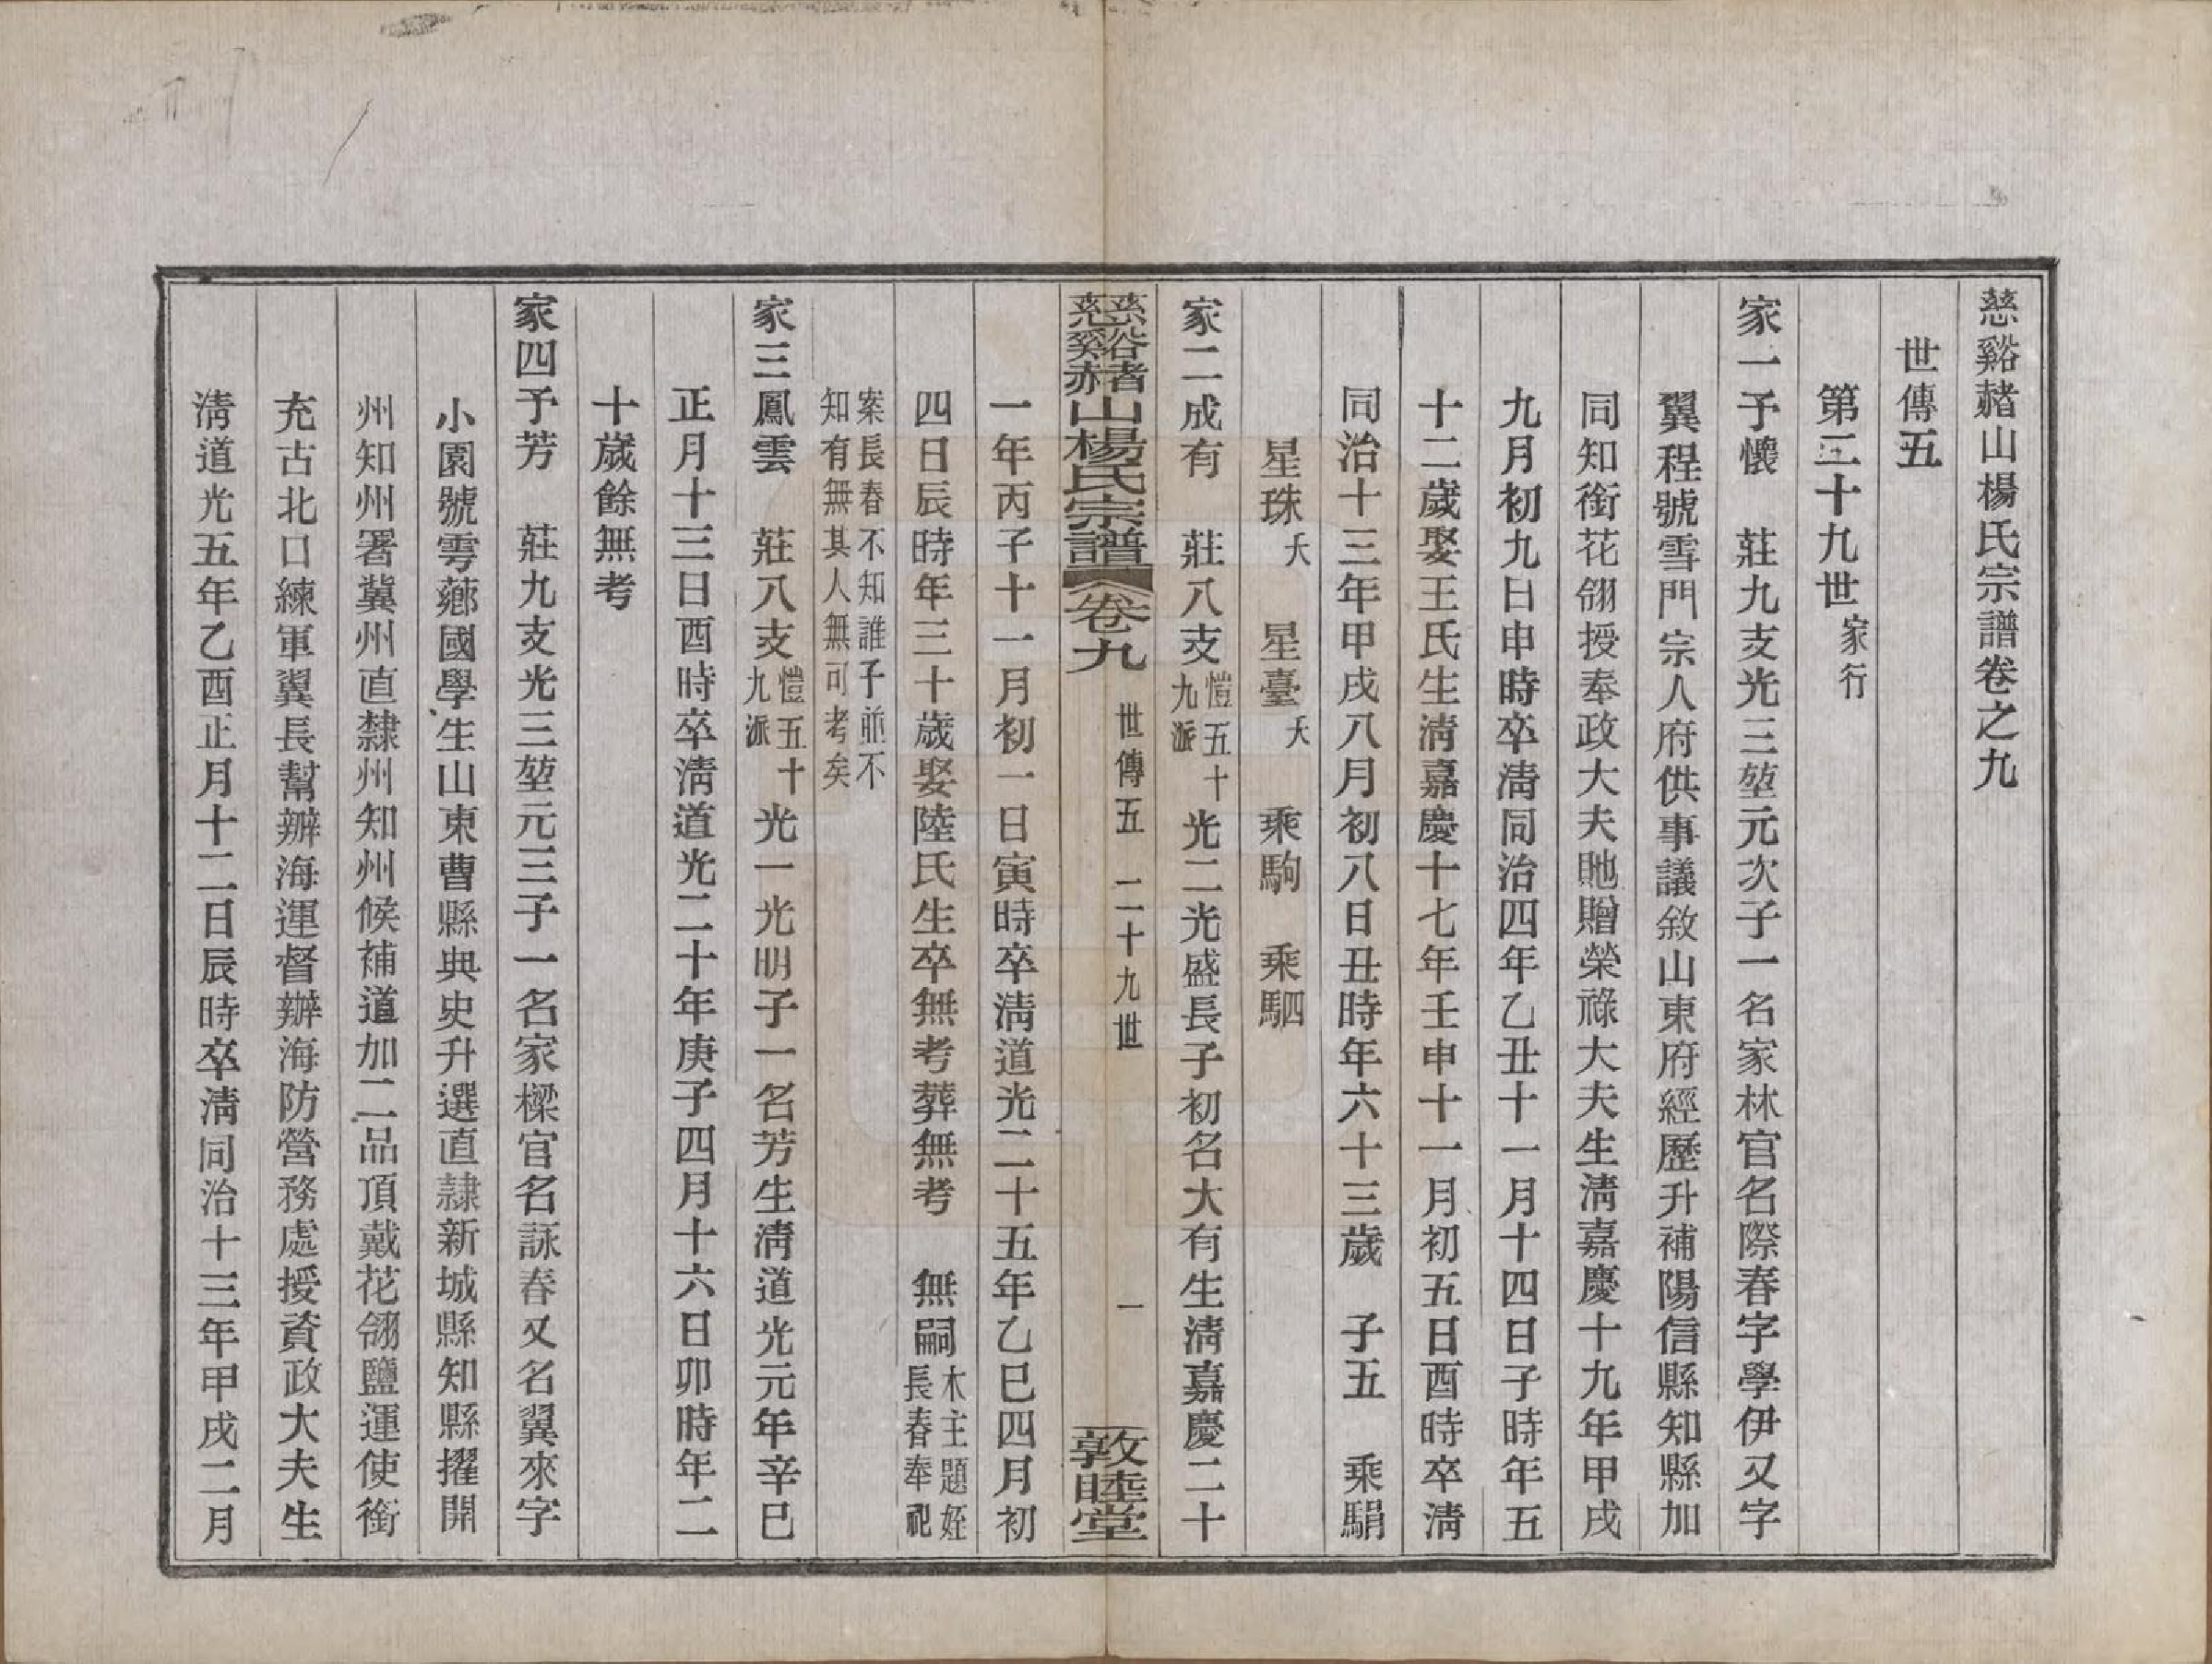 慈谿赭山楊氏宗譜卷之九
世傳五
第二十九世家行
家一予懷 莊九支光三堃元次子一名家林官名際春字學伊又字
翼程號雪門宗人府供事議敘山東府經歷升補陽信縣知縣加
同知銜花翎授奉政大夫貤贈榮祿大夫生淸嘉慶十九年甲戌
九月初九日申時卒淸同治四年乙丑十一月十四日子時年五
十二歲娶王氏生淸嘉慶十七年壬申十一月初五日酉時卒淸
同治十三年甲戌八月初八日丑時年六十三歲 子五 乘騆
星珠夭 星臺夭 乘駒 乘駟
家二成有 莊八支愷五十九派光二光盛長子初名大有生淸嘉慶二十
慈谿赭山楊氏宗譜 卷九 世傳五 二十九世 一 敦睦堂
一年丙子十一月初一日寅時卒淸道光二十五年乙巳四月初
四日辰時年三十歲娶陸氏生卒無考葬無考 無嗣木主題姪長春奉祀
案長春不知誰子並不知有無其人無可考矣
家三鳳雲 莊八支愷五十九派光一光明子一名芳生淸道光元年辛巳
正月十三日酉時卒淸道光二十年庚子四月十六日卯時年二
十歲餘無考
家四予芳 莊九支光三堃元三子一名家樑官名詠春又名翼來字
小園號雩薌國學生山東曹縣典史升選直隸新城縣知縣擢開
州知州署冀州直隸州知州候補道加二品頂戴花翎鹽運使銜
充古北口練軍翼長幫辦海運督辦海防營務處授資政大夫生
淸道光五年乙酉正月十二日辰時卒淸同治十三年甲戌二月